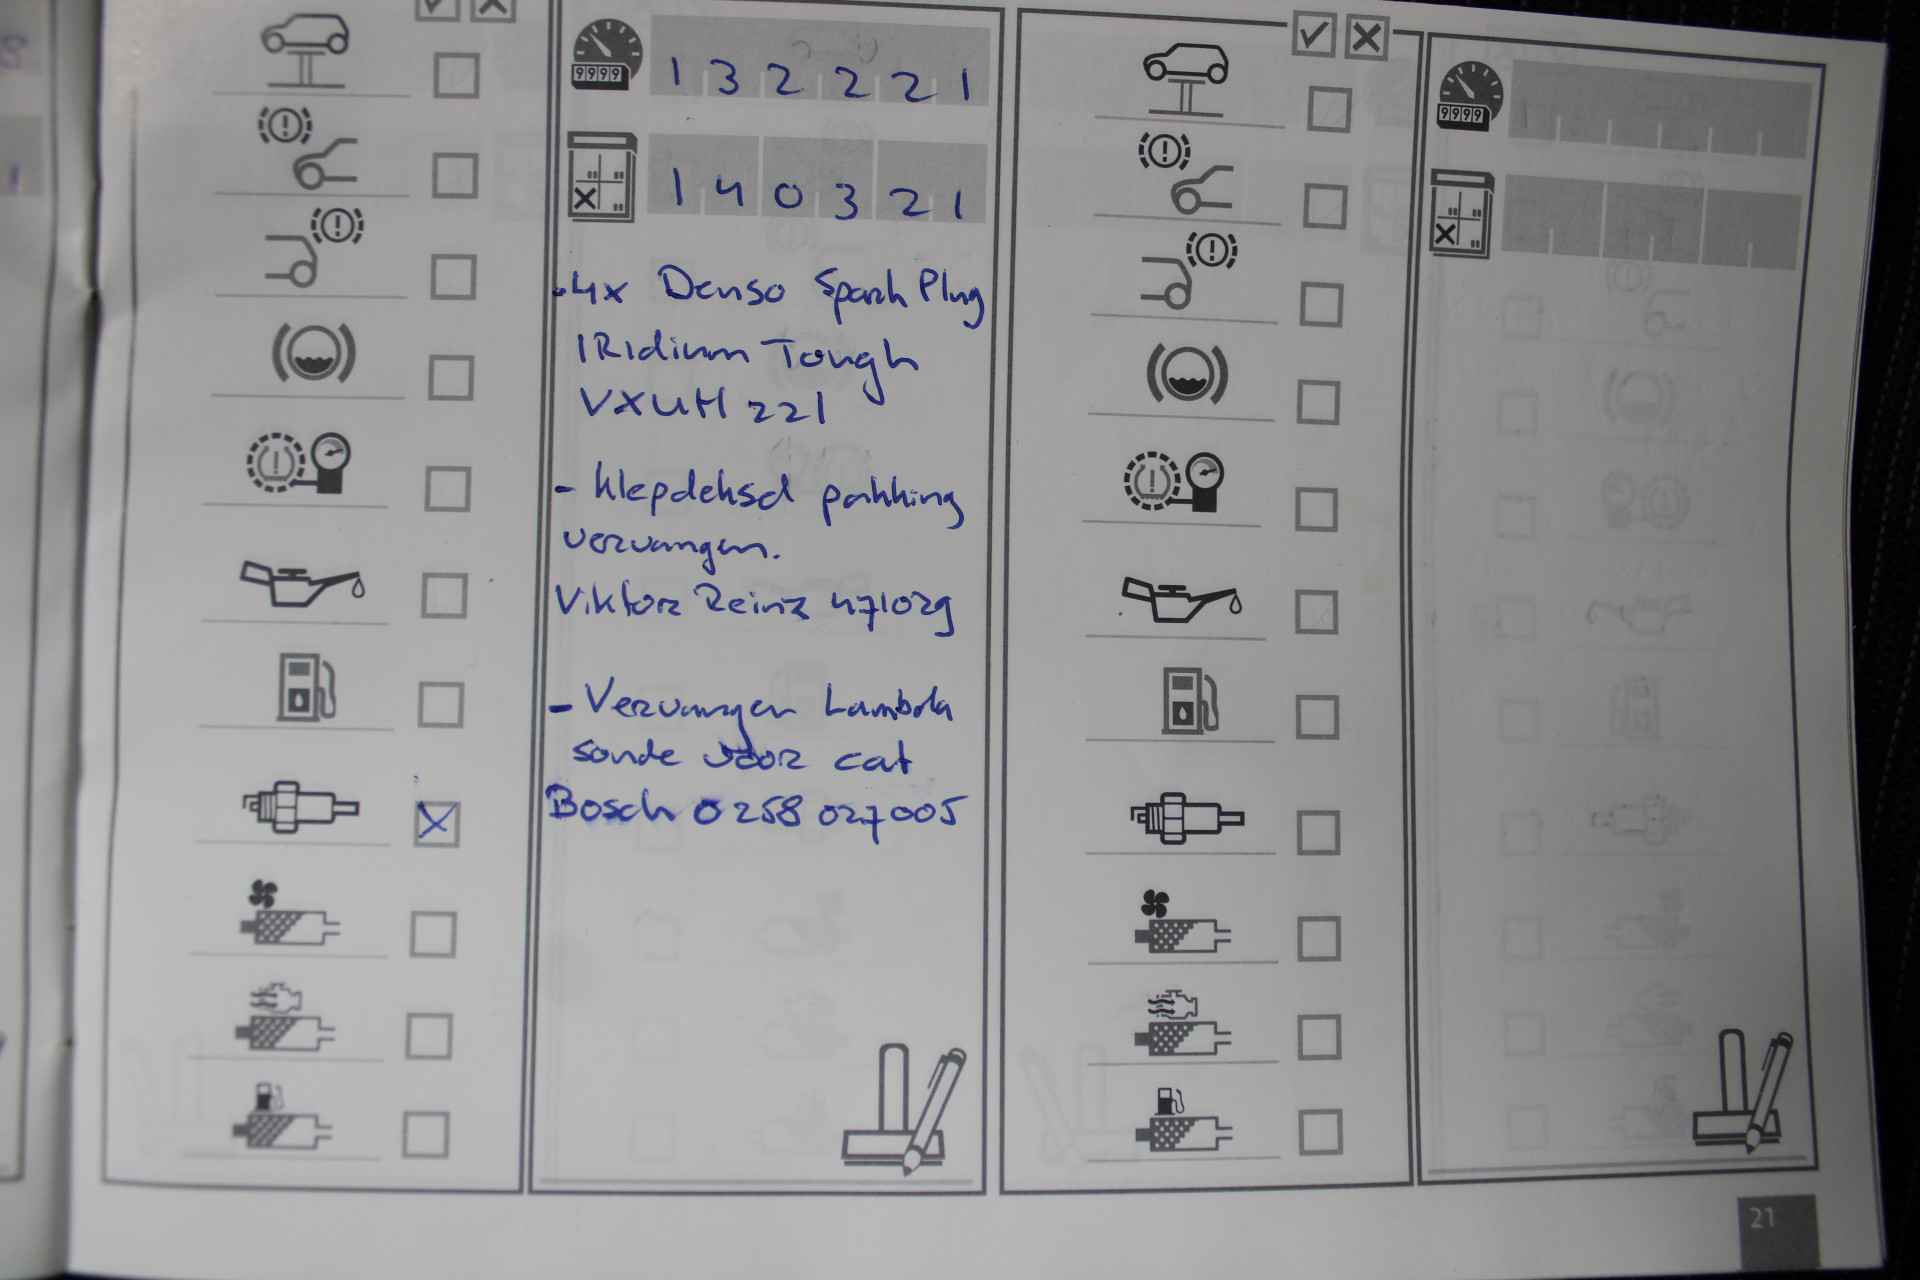 9999
132221
140321
-4x Denso Spark Plug
IRidium Tough
VXUH 221
- Klepdeksel pakking
vervangen.
Viktor Reinz 471029
- Vervangen Lambda
sonde voor cat
Bosch 0258 027005
9999
21